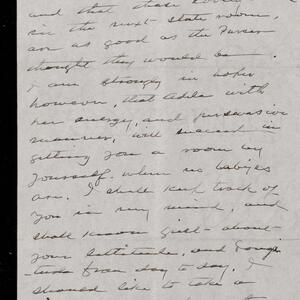 and that those
in the next state room,
are as good as the Purser
thought they would be.
I am strongly in hopes
however, that Adele with
her energy, and persuasive
manner, will succeed in
getting you a room by
yourself, where no babies
are. I shall keep track of
you in my mind, and
shall know just about
your latitude, and longi-
tude from day to day. I
should like to take a